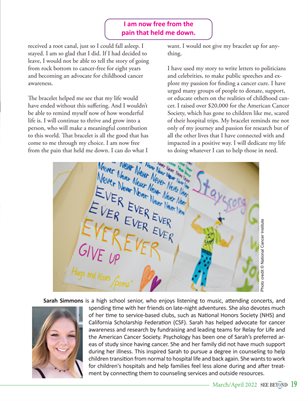 I am now free from the
pain that held me down.
received a root canal, just so I could fall asleep. I
stayed. I am so glad that I did. If I had decided to
leave, I would not be able to tell the story of going
from rock bottom to cancer-free for eight years
and becoming an advocate for childhood cancer
awareness.
The bracelet helped me see that my life would
have ended without this suffering. And I wouldn't
be able to remind myself now of how wonderful
life is. I will continue to thrive and grow into a
person, who will make a meaningful contribution
to this world. That bracelet is all the good that has
come to me through my choice. I am now free
from the pain that held me down. I can do what I
want. I would not give my bracelet up for any-
thing.
I have used my story to write letters to politicians
and celebrities, to make public speeches and ex-
plore my passion for finding a cancer cure. I have
urged many groups of people to donate, support,
or educate others on the realities of childhood can-
cer. I raised over $20,000 for the American Cancer
Society, which has gone to children like me, scared
of their hospital trips. My bracelet reminds me not
only of my journey and passion for research but of
all the other lives that I have connected with and
impacted in a positive way. I will dedicate my life
to doing whatever I can to help those in need.
Never Never Never Never
EVER EVER EVER
EVER EVER EVER
EVEREVER
GIVE UP
Hugs and Kisses
Stay Strong
Photo credit © National Cancer Institute
Sarah Simmons is a high school senior, who enjoys listening to music, attending concerts, and
spending time with her friends on late-night adventures. She also devotes much
of her time to service-based clubs, such as National Honors Society (NHS) and
California Scholarship Federation (CSF). Sarah has helped advocate for cancer
awareness and research by fundraising and leading teams for Relay for Life and
the American Cancer Society. Psychology has been one of Sarah's preferred ar-
eas of study since having cancer. She and her family did not have much support
during her illness. This inspired Sarah to pursue a degree in counseling to help
children transition from normal to hospital life and back again. She wants to work
for children's hospitals and help families feel less alone during and after treat-
ment by connecting them to counseling services and outside resources.
March/April 2022 SEE BEYOND 19